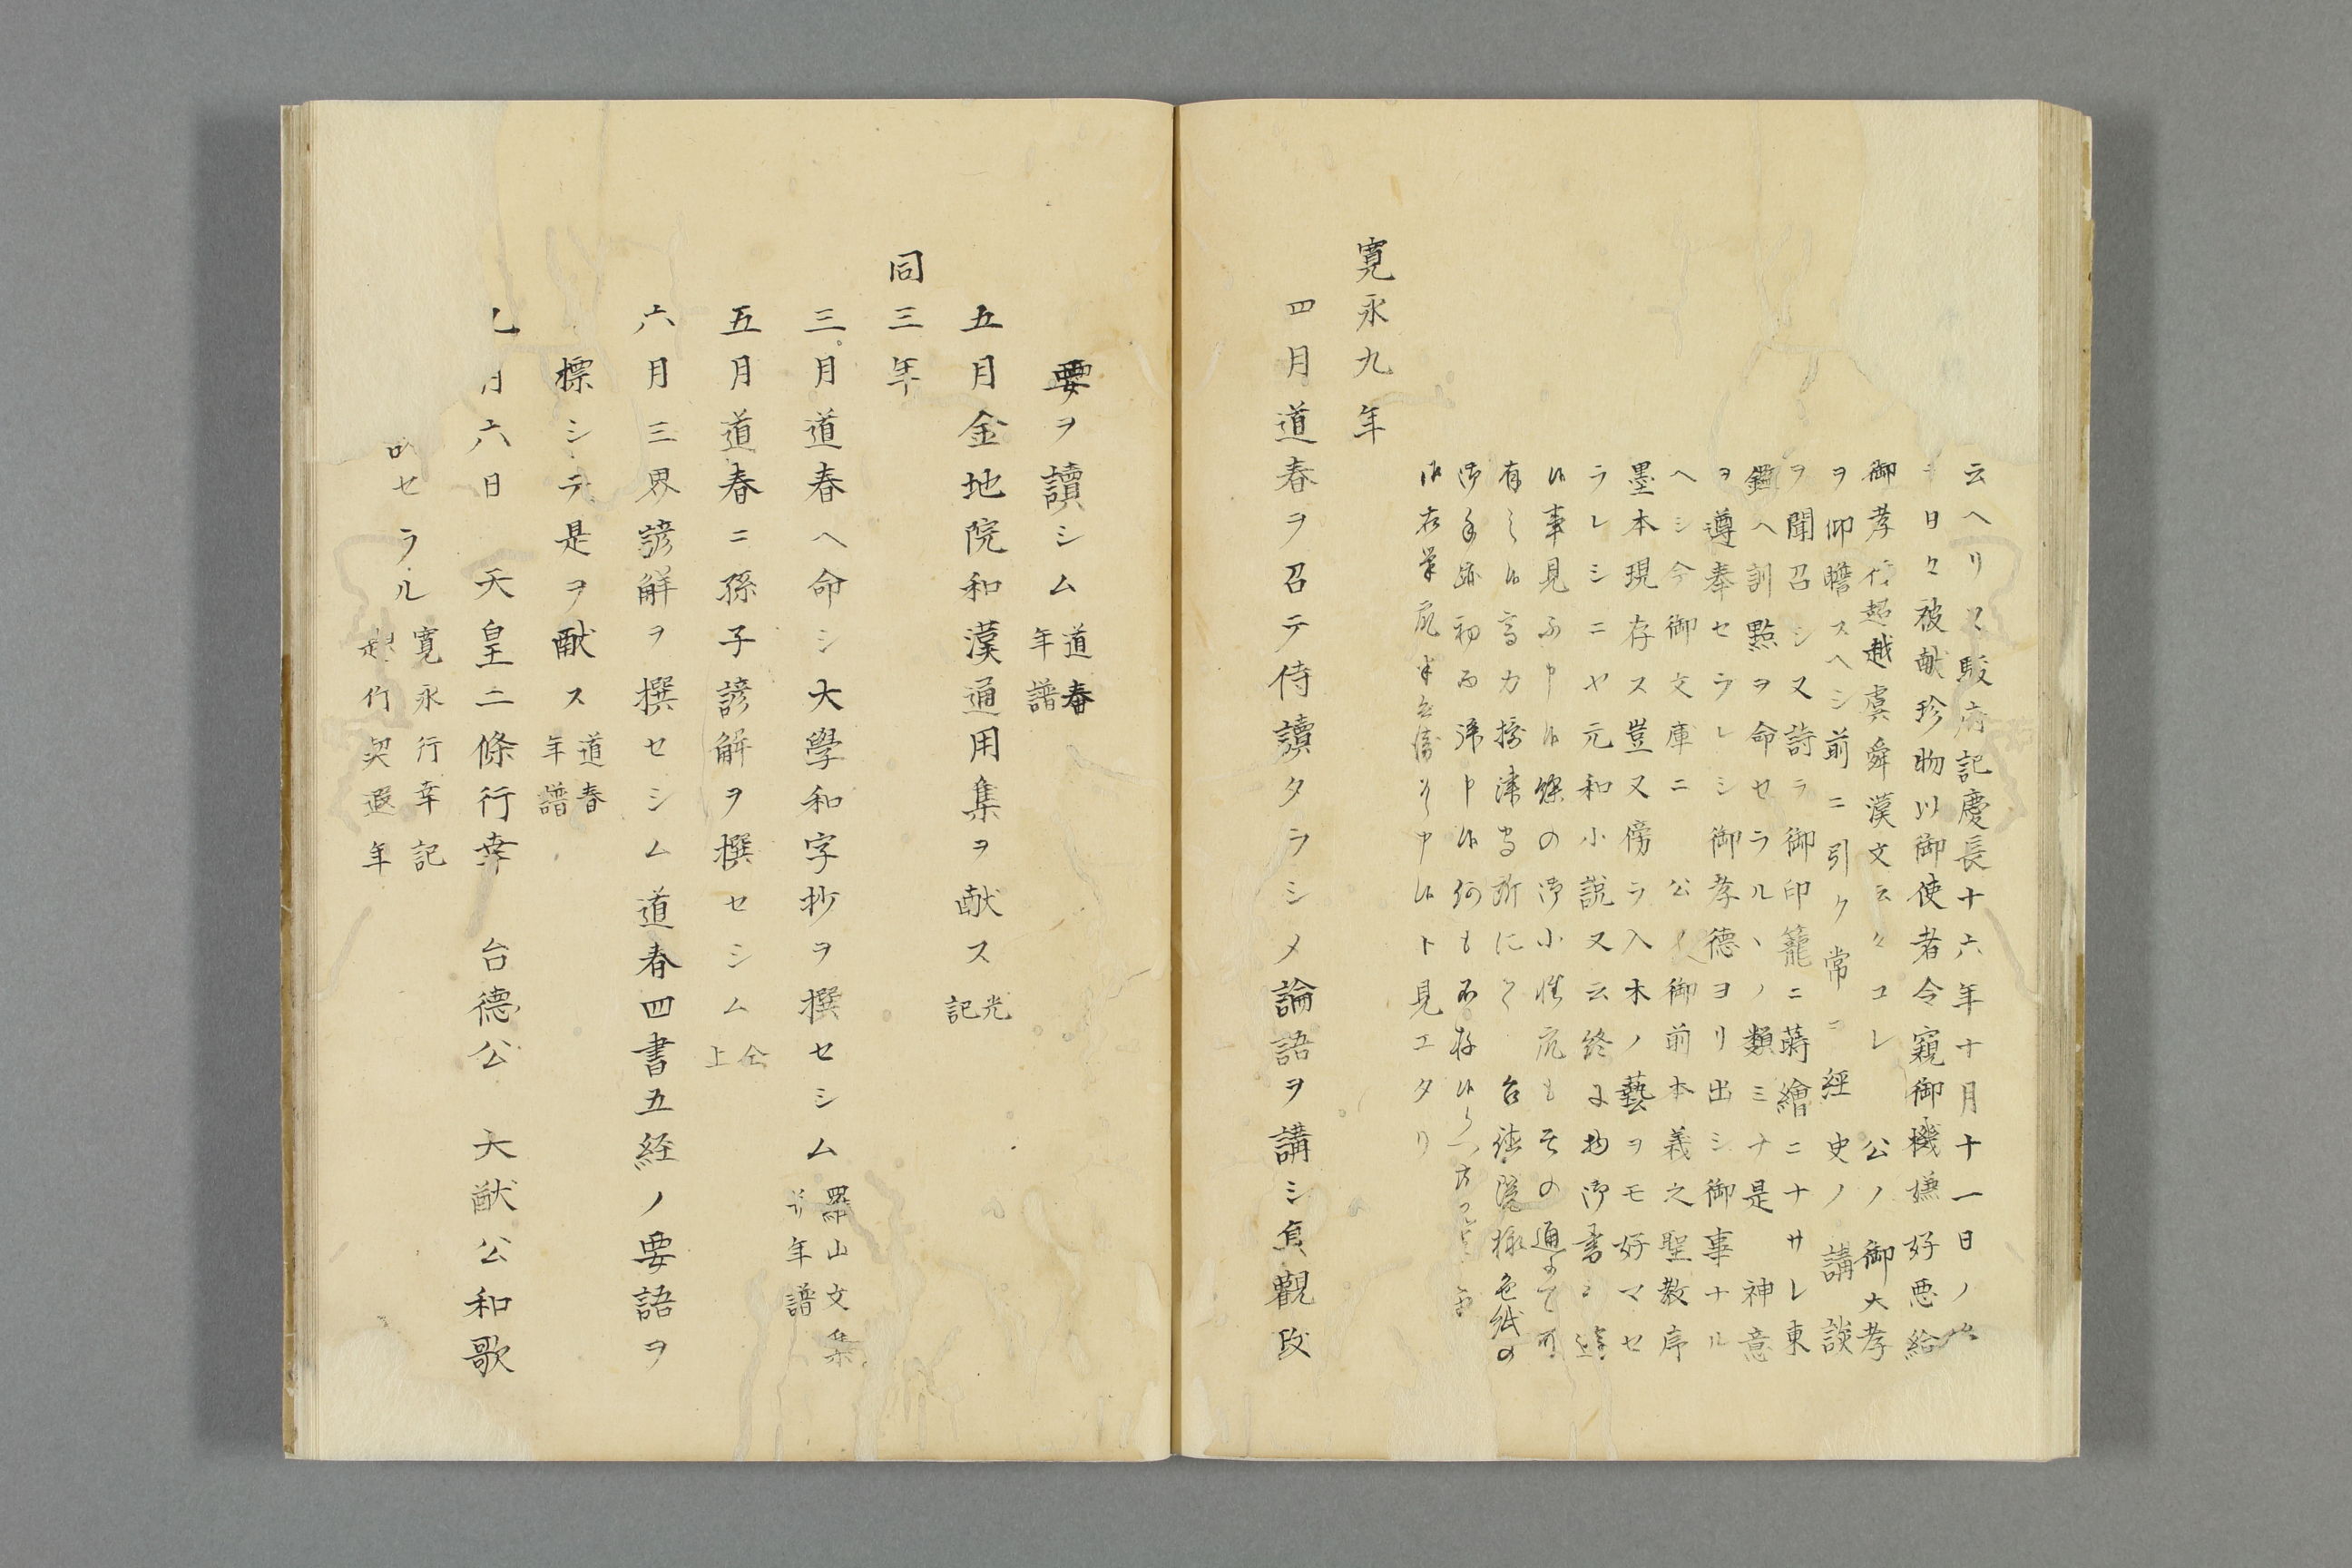 云ヘリ又駿府記慶長十六年十月十一日ノ
日々被献珍物以御使者令窺御機嫌好悪給
御孝行超越虞舜漢文云々コレ 公ノ御大孝
ヲ仰瞻スヘシ前ニ引ク常ニ 經史ノ講談
ヲ聞召シ又詩ヲ御印籠ニ蒔繪ニナサレ東
鑑ヘ訓點ヲ命セラルヽノ類ミナ是 神意
ヲ遵奉セラレシ御孝德ヨリ出シ御事ナル
ヘシ今御文庫ニ 公ノ御前本義之聖教序
墨本現存ス豈又傍ラ入木ノ藝ヲモ好マセ
ラレシニヤ元和小説又云終に物御書
候事見不申候 の御小姓衆もその通にて
有之候 にて 台徳院様色紙の
御手跡初而 申候何も不存候
申候ト見エタリ
寛永九年
四月道春ヲ召テ侍讀タラシメ論語ヲ講シ貞觀政
要ヲ讀シム 道春年譜
五月金地院和漢通用集ヲ献ス 光記
同三年
三月道春ヘ命シ大學和字抄ヲ撰セシム 羅山文集并年譜
五月道春ニ孫子諺解ヲ撰セシム 仝上
六月三畧諺解ヲ撰セシム道春四書五経ノ要語ヲ
標シテ是ヲ献ス 道春年譜
月六日 天皇二條行幸 台德公 大猷公和歌
セラル 寛永行幸記 契遐年